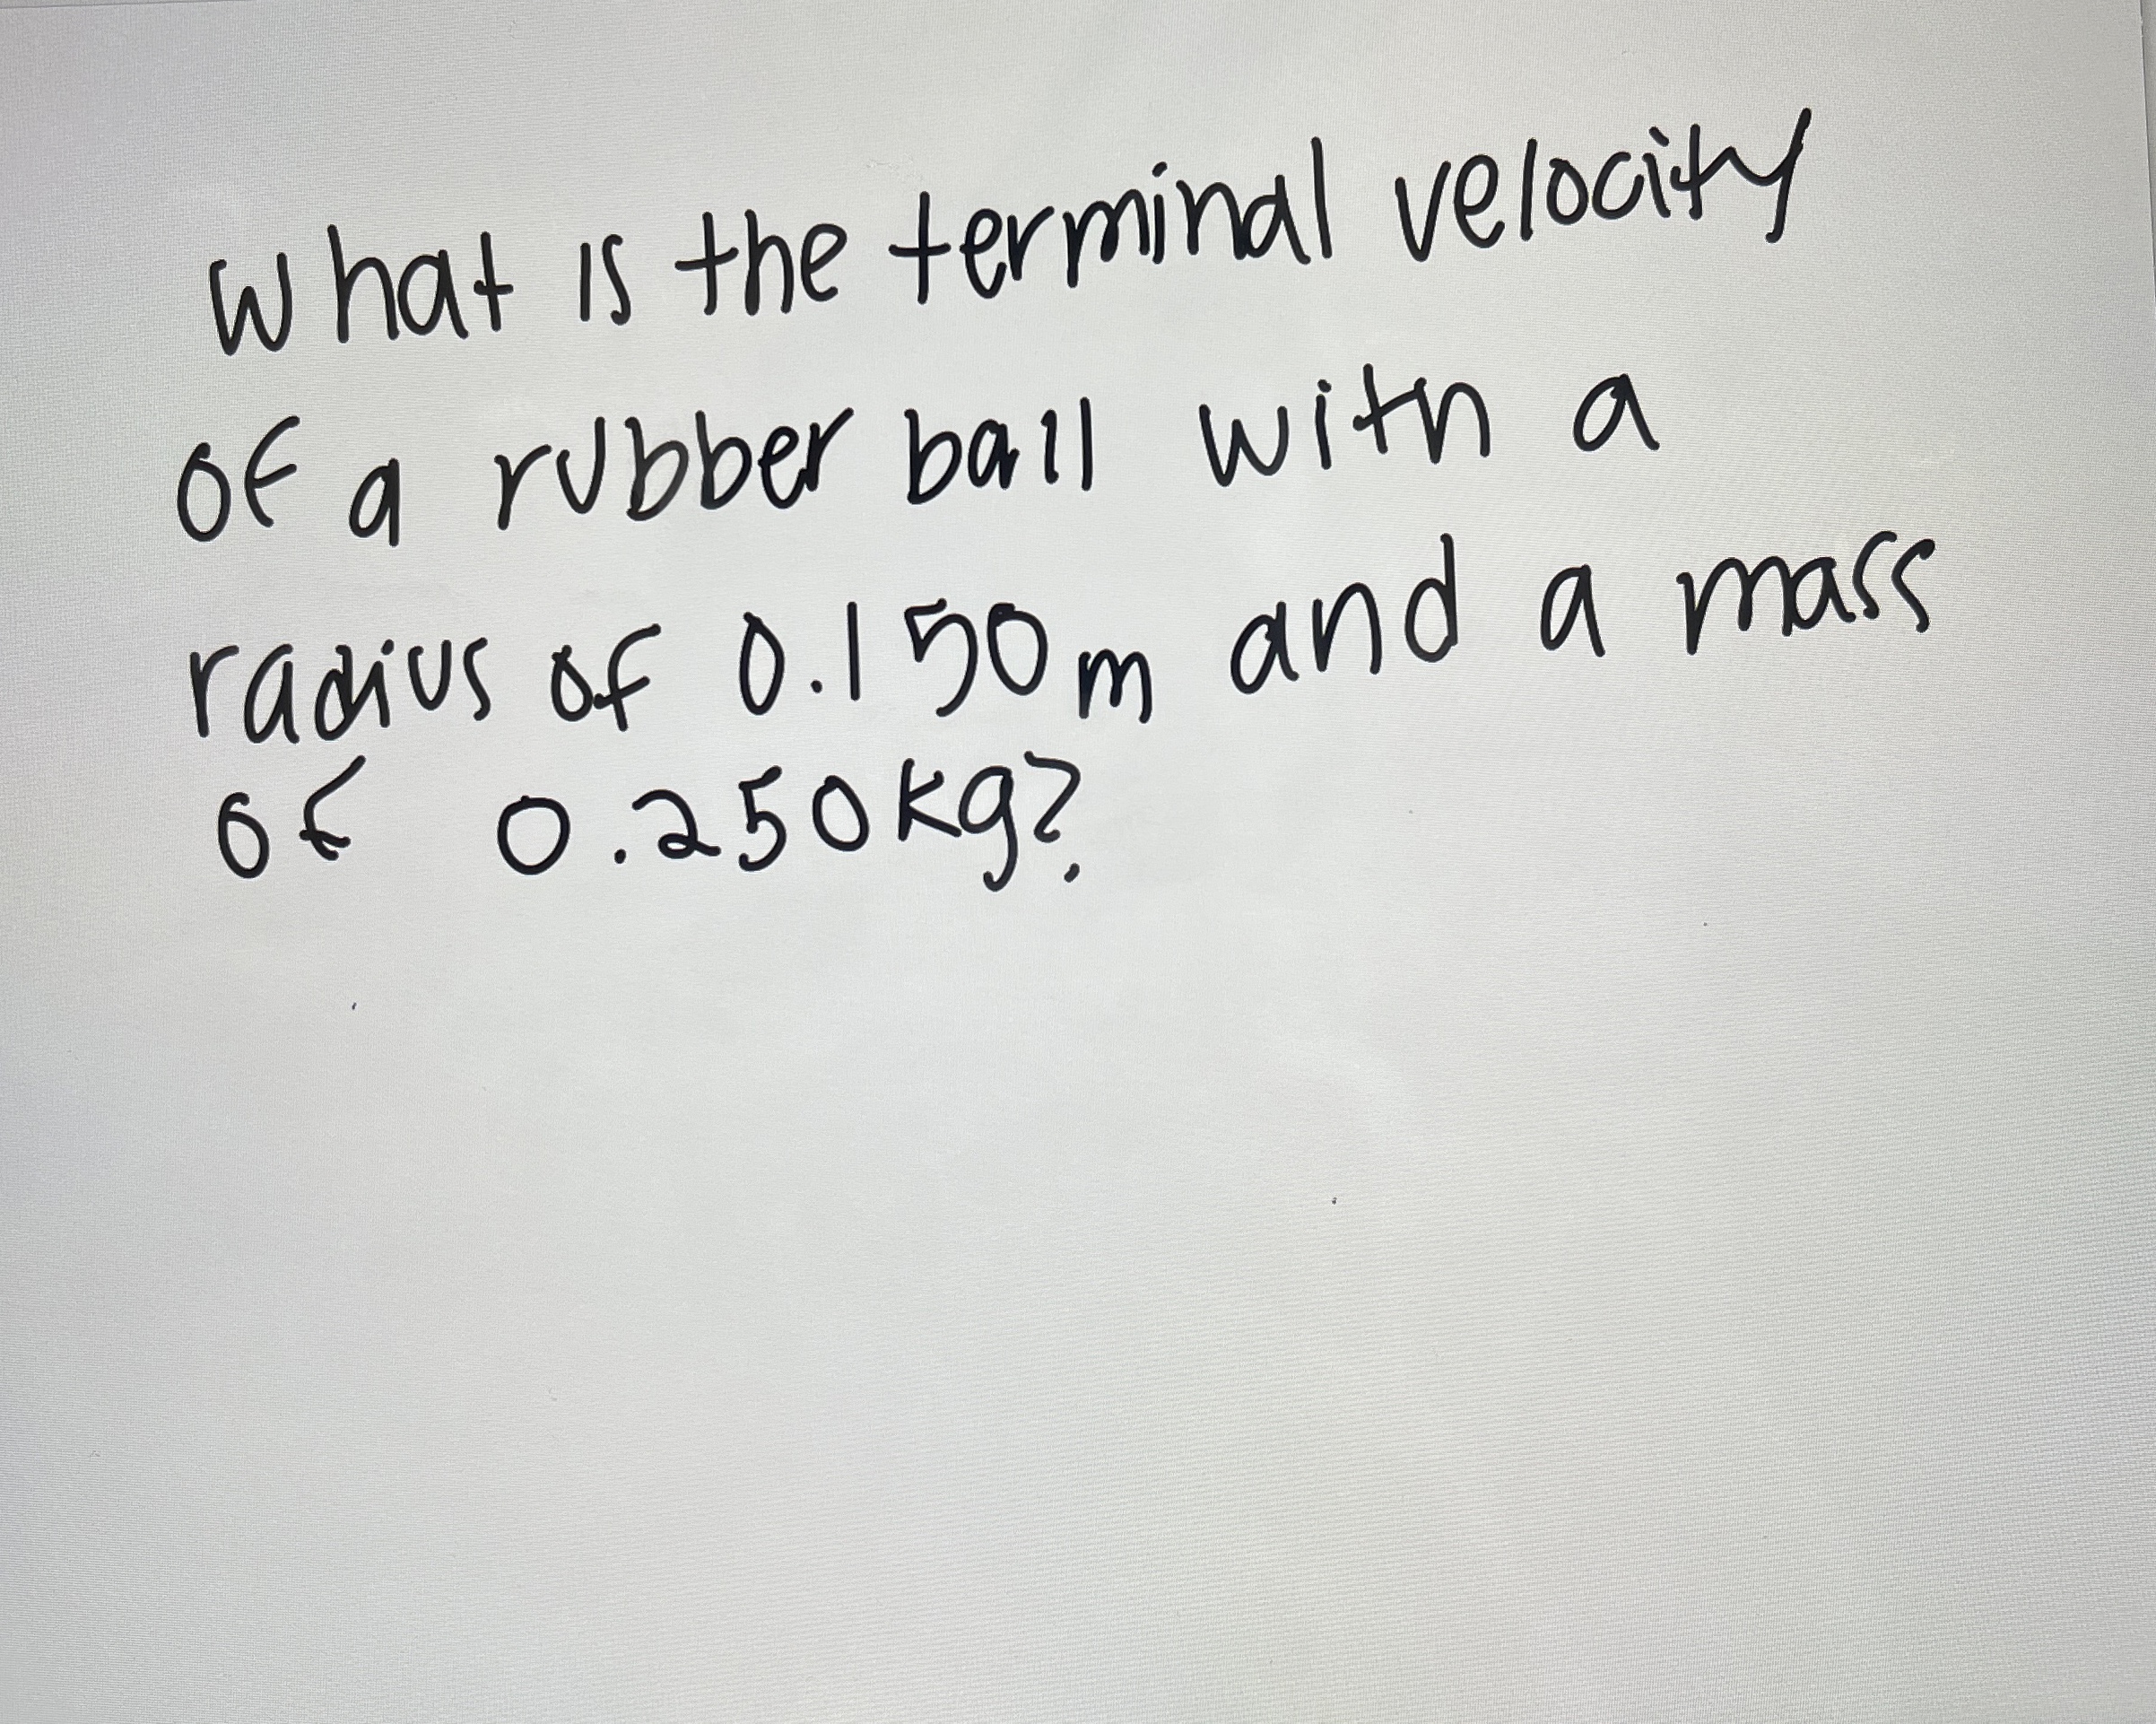 What is the terminal velocity
of a rubber ball with a
radius of 0.150m and a mass
of 0.250kg?